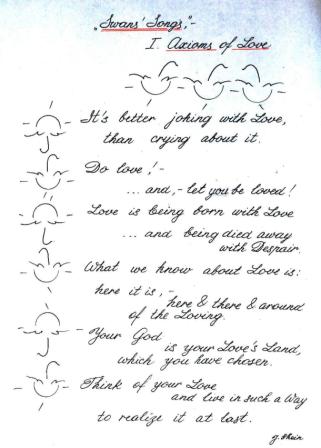 „Swans' Songs",-
I. Axioms of Love
It's better joking with Love,
than crying about it.
Do love!-
... and,- let you be loved!
Love is being born with Love
... and being died away
with Despair.
What we know about Love is:
here it is,-
here & there & around
of the Loving.
Your God
is your Love's Land,
which you have chosen.
Think of your Love
and live in such a Way
to realize it at last.
g. Shein